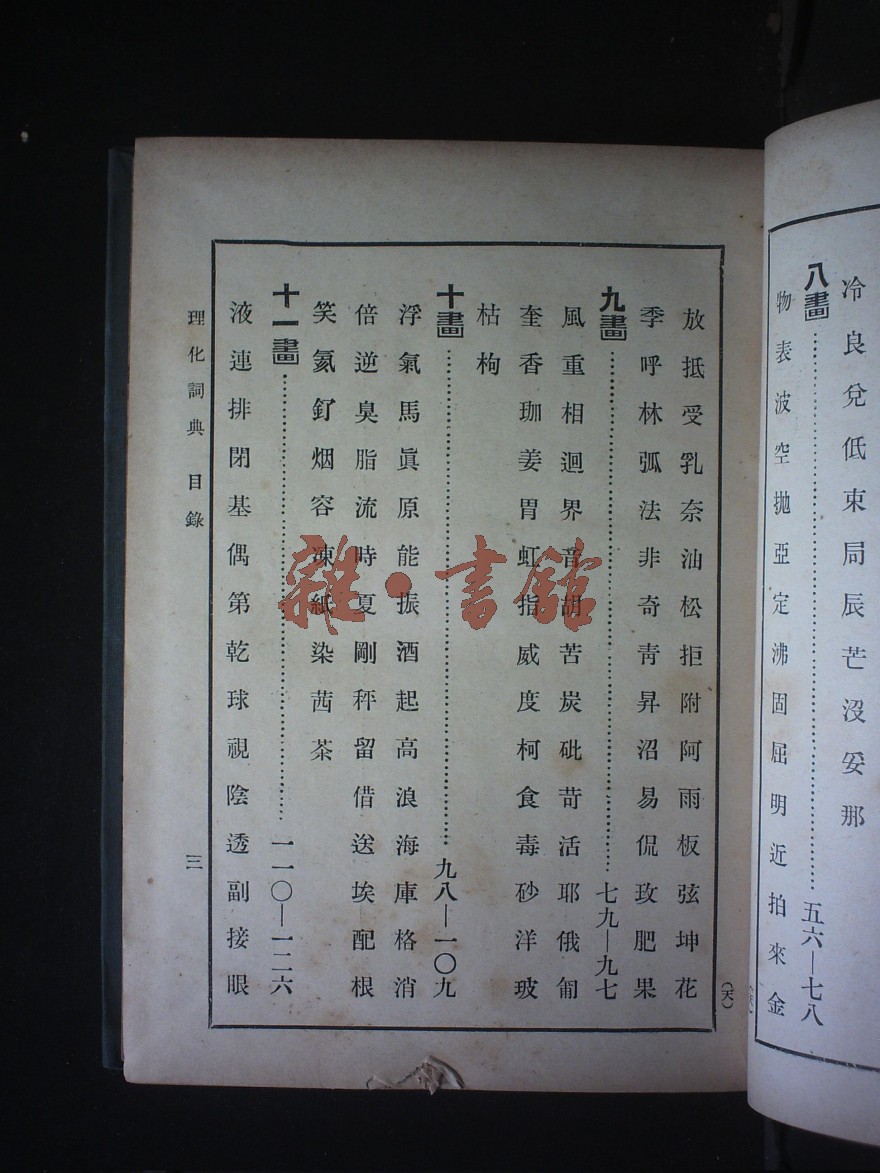 冷良兌低束局辰芒沒妥那
八畫……五六—七八
物表波空拋亞定沸固屈明近拍來金
放抵受乳奈油松拒附阿雨板弦坤花
季呼林弧法非奇靑昇沼易侃玫肥果
九畫……七九—九七
風重相迴界音胡苦炭砒苛活耶俄匍
奎香珈姜胃虹指威度柯食毒砂洋玻
枯枸
十畫……九八—一〇九
浮氣馬眞原能振酒起高浪海庫格消
倍逆臭脂流時夏剛秤留借送埃配根
笑氦釕烟容凍紙染茜茶
十一畫……一一〇—一二六
液連排閉基偶第乾球視陰透副接眼
理化詞典 目錄
三
(天)
雜·書館